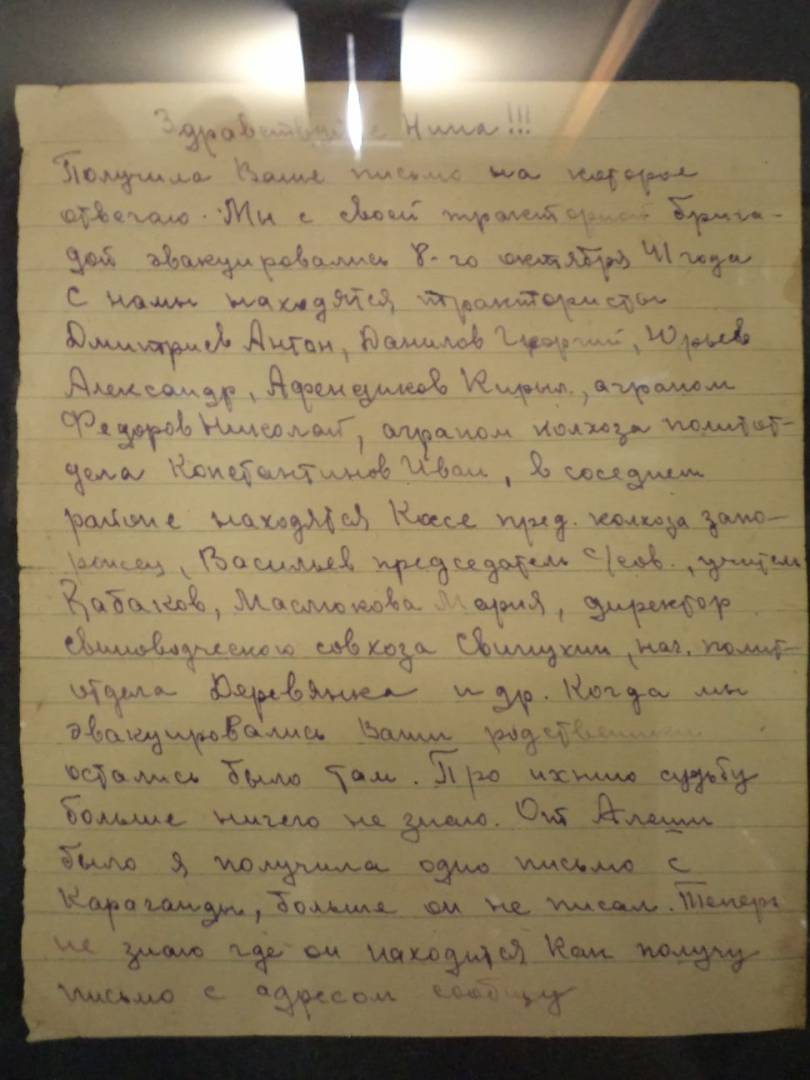 Здравствуйте Нина!!!
Получила Ваше письмо на которое
отвечаю. Мы с своей тракторной брига-
дой эвакуировались 8-го октября 41 года
С нами находятся трактористы
Дмитриев Антон, Данилов Георгий, Юрьев
Александр, Афендиков Кирил, аграном
Федоров Николай, аграном колхоза политот-
дела Константинов Иван, в соседнем
районе находятся Касе пред. колхоза запо-
рожец, Васильев председатель с/сов., учитель
Кабаков, Маслюкова Мария, директор
свиноводческого совхоза Свинухин, нач. полит-
отдела Деревянка и др. Когда мы
эвакуировались Ваши родственники
остались было там. Про ихнию судьбу
больше ничего не знаю. От Алеши
было я получила одно письмо с
Караганды, больше он не писал. Теперь
не знаю где он находится Как получу
письмо с адресом сообщу